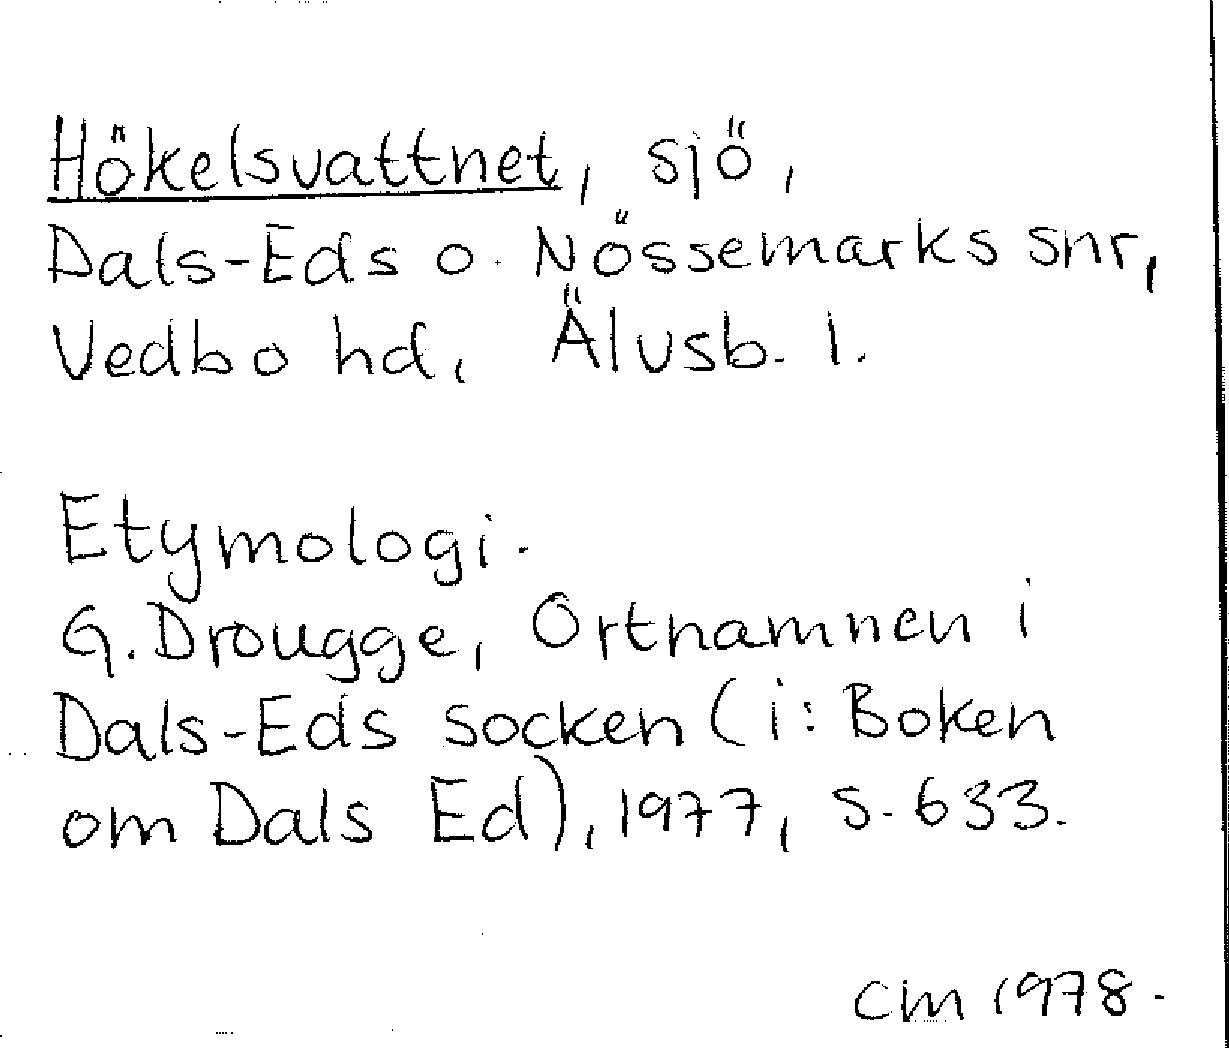 Hökelsvattnet, sjö,
Dals-Eds o. Nössemarks snr,
Vedbo hd, Älvsb. l.
Etymologi.
G. Drougge, Ortnamnen i
Dals-Eds socken (i: Boken
om Dals Ed), 1977, s. 633.
CM 1978.